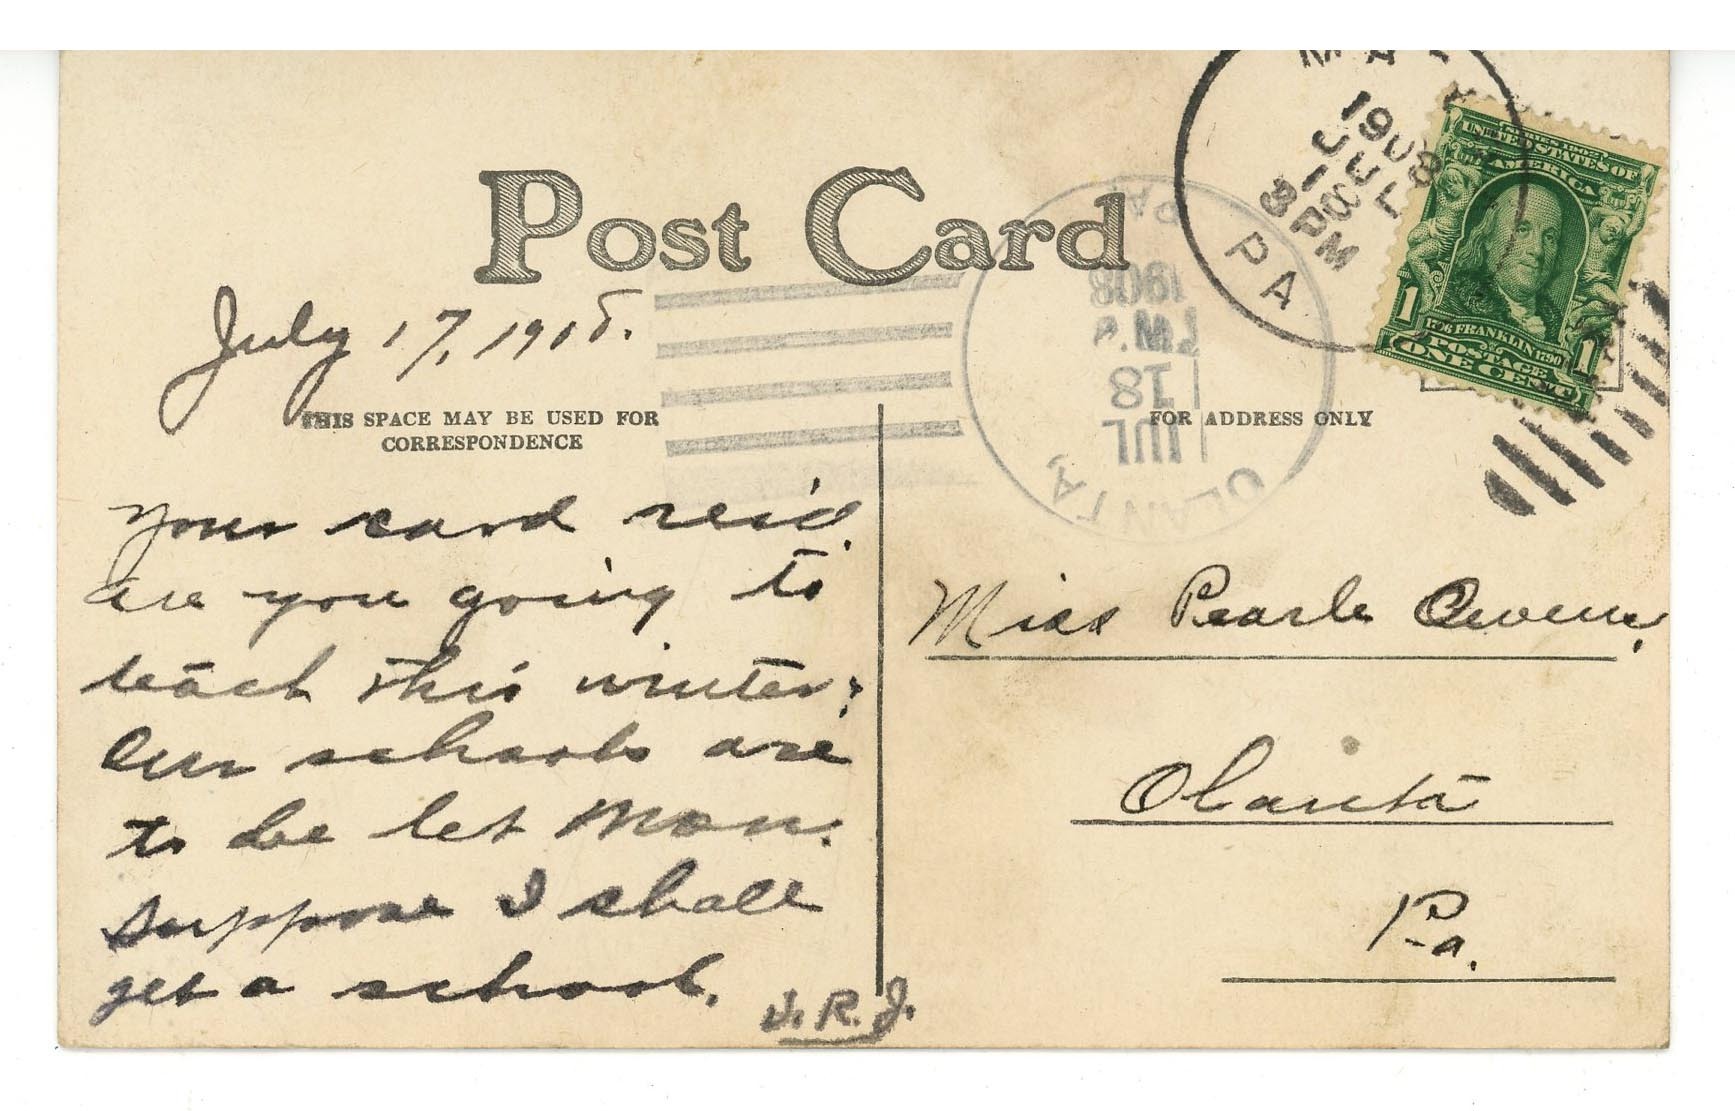 Post Card
July 17, 1908.
THIS SPACE MAY BE USED FOR
CORRESPONDENCE
FOR ADDRESS ONLY
Your card rec'd.
Are you going to
teach this winter?
Our schools are
to be let Mon.
Suppose I shall
get a school.
I.R.J.
Miss Pearle Owens,
Olanta
Pa.
1908
JUL
18
3 PM
PA
PA.
1908
P.M.
18
JUL
OLANTA
SERIES 1902
UNITED STATES OF
AMERICA
1706 FRANKLIN 1790
POSTAGE
1 ONE CENT 1